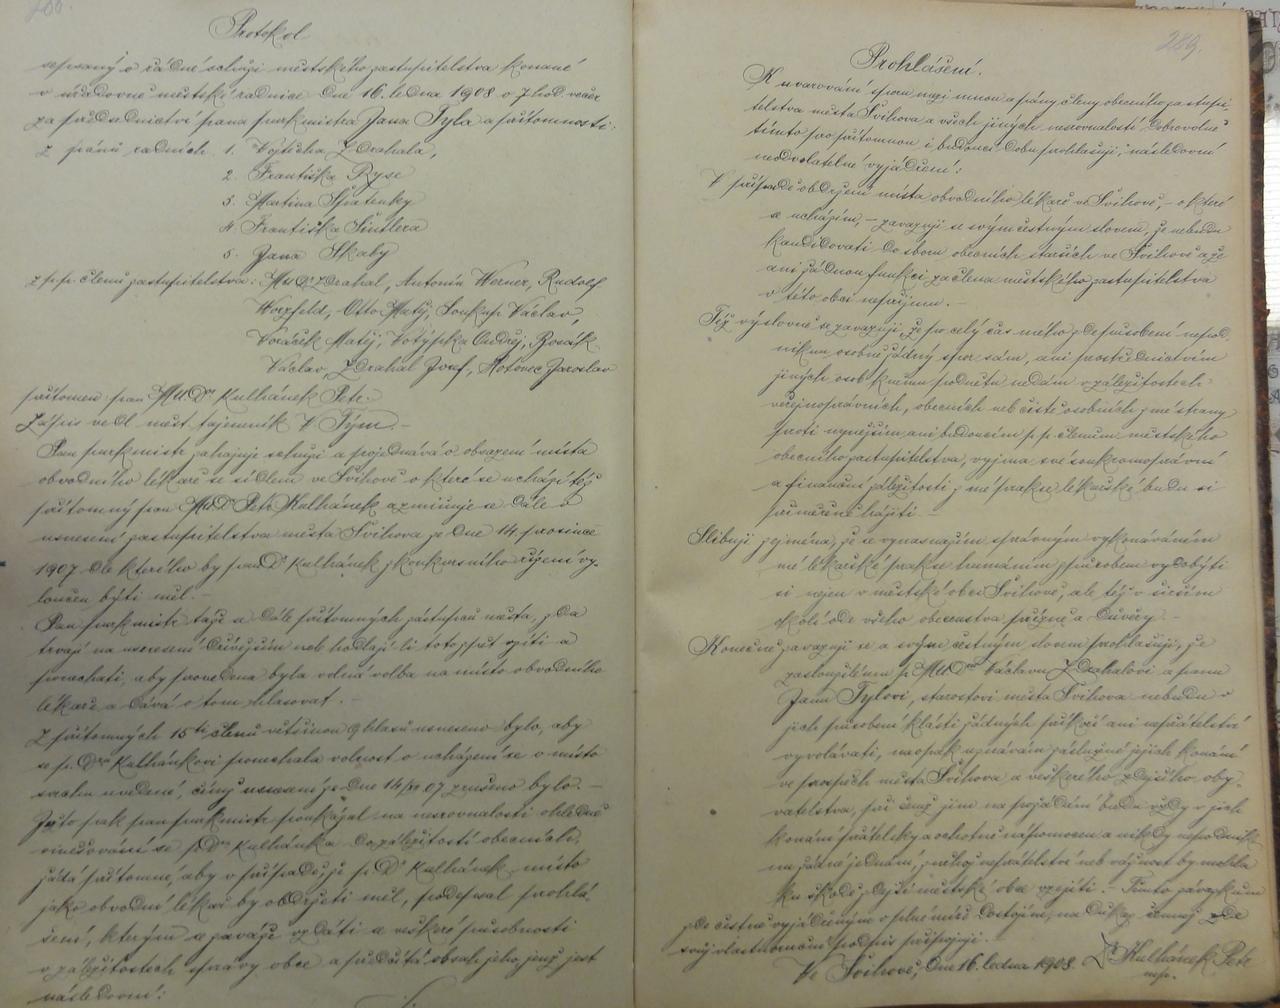 288.
Protokol
sepsaný o řádné schůzi městského zastupitelstva konané
v úřadovně městské radnice dne 16. ledna 1908 o 7 hod. večer
za předsednictví pana purkmistra Jana Tyla a přítomnosti:
z pánů radních 1. Vojtěcha Zdrahala,
2. Františka Ryse
3. Martina
4. Františka Šintlera
5. Jana Skaby
z p. p. členů zastupitelstva: MUDr Zdrahal, Antonín Werner, Rudolf
Otto Matý, Soukup Václav,
Voráček Matěj, Votýpka Ondřej,
Václav, Zdrahal Josef, Hotovec Jaroslav
přítomen pan MUDr Kulhánek Petr.
Zápis vedl měst. tajemník V. Týml. –
Pan purkmistr zahajuje schůzi a pojednává o obsazení místa
obvodního lékaře se sídlem ve Švihově o které se uchází též
přítomný pan MUDr Petr Kulhánek a zmiňuje se dále o
usnesení zastupitelstva města Švihova ze dne 14. prosince
1907 dle kterého by pan Dr Kulhánek z konkursního řízení vy-
loučen býti měl. –
Pan purkmistr táže se dále přítomných zástupců města, zda
trvají na usnesení dřívějším neb hodlají-li toto zpět vzíti a
ponechati, aby provedena byla volná volba na místo obvodního
lékaře a dává o tom hlasovat. –
Z přítomných 15ti členů většinou 9 hlasů usneseno bylo, aby
se p. Dru Kulhánkovi ponechala volnost o ucházení se o místo
svrchu uvedené, čímž usnesení ze dne 14/XII 07 zrušeno bylo. –
Zato pak pan purkmistr poukázal na nesrovnalosti ohledně
vměšování se p. Dra Kulhánka do záležitostí obecních,
žádá přítomné, aby v případě, že p. Dr Kulhánek místo
jako obvodní lékař by obdržeti měl, podepsal prohlá-
šení, kterým se zaváže vzdáti se veškeré působnosti
v záležitostech správy obce a předčítá obsah jeho, jenž jest
následovní:
289.
Prohlášení.
K uvarování sporu mezi mnou a pány členy obecního zastupi-
telstva města Švihova a všech jiných nesrovnalostí dobrovolně
tímto pro přítomnou i budoucí dobu prohlašuji, následovní
neodvolatelné vyjádření:
V případě obdržení místa obvodního lékaře ve Švihově, – o které
se ucházím, – zavazuji se svým čestným slovem, že nebudu
kandidovati do sboru obecních starších ve Švihově a že
ani žádnou funkci za člena městského zastupitelstva
v této obci nepřijmu. –
Též výslovně se zavazuji, že po celý čas mého zde působení nepod-
niknu osobně žádný spor sám, ani prostřednictvím
jiných osob k němu podnětu nedám v záležitostech
veřejnoprávních, obecních neb čistě osobních z mé strany
proti nynějším ani budoucím p. p. členům městského
obecního zastupitelstva, vyjma své soukromoprávní
a finanční záležitosti z mé prakse lékařské budu si
přiměřeně hájiti. –
Slibuji zejména, že se vynasnažím správným vykonáváním
mé lékařské prakse humánním způsobem vydobýti
si nejen v městské obci Švihově, ale též v širším
okolí ode všeho obecenstva přízně a důvěry. –
Konečně zavazuji se a svým čestným slovem prohlašuji, že
zasloužilému p. MUDru Václavu Zdrahalovi a panu
Janu Tylovi, starostovi města Švihova nebudu v
jich působení klásti žádných překážek ani nepřátelství
vyvolávati, naopak uznávám záslužné jejich konání
ve prospěch města Švihova a veškerého zdejšího oby-
vatelstva, při čemž jim na požádání budu vždy v jich
konání přátelsky a ochotně nápomocen a nikdy nepodnik-
nu žádné jednání, z něhož nepřátelství neb vášnost by mohla
ku škodě zdejší městské obce vzejíti. – Tímto závazkům
zde čestně vyjádřeným v plné míře dostojím, na důkaz čehož zde
svůj vlastnoruční podpis připojuji. –
Ve Švihově, dne 16. ledna 1908. Dr Kulhánek Petr
mp.